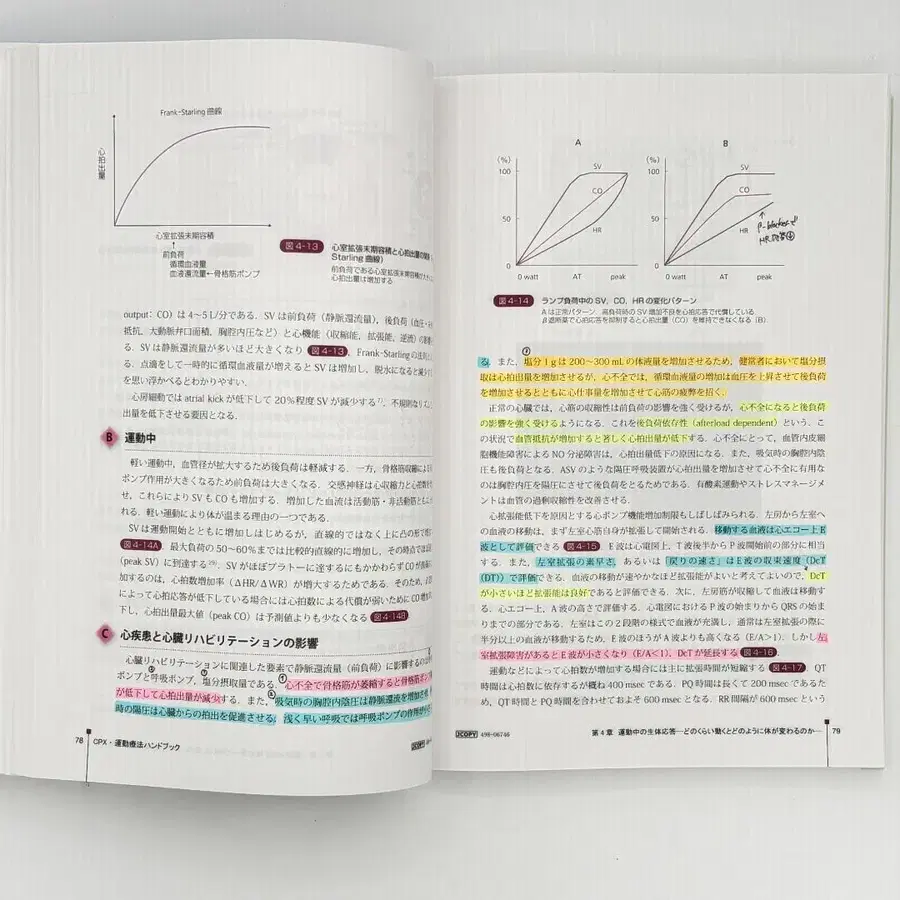 Frank-Starling 曲線
心拍出量
心室拡張末期容積
前負荷
循環血液量
血液還流量←骨格筋ポンプ
図4-13 心室拡張末期容積と心拍出量の関係
Starling 曲線)
前負荷である心室拡張末期容積が大き
心拍出量は増加する
output:CO)は 4〜5 L/分である.SV は前負荷(静脈還流量),後負荷(血圧・
抵抗,大動脈弁口面積,胸腔内圧など)と心機能(収縮能,拡張能,逆流)の影響
る.SV は静脈還流量が多いほど大きくなり 図4-13 ,Frank-Starling の法則
る.点滴をして一時的に循環血液量が増えると SV は増加し,脱水になると減少
を思い浮かべるとわかりやすい.
心房細動では atrial kick が低下して 20%程度 SV が減少する,不規則な
出量を低下させる要因となる.
B 運動中
軽い運動中,血管径が拡大するため後負荷は軽減する.一方,骨格筋収縮による
ポンプ作用が大きくなるため前負荷は大きくなる.交感神経は心収縮力と心拍数を
せ,これらにより SV も CO も増加する.増加した血流は活動筋・非活動筋とも
れる.軽い運動により体が温まる理由の一つである.
SV は運動開始とともに増加しはじめるが,直線的ではなく上に凸の形で増
図4-14A .最大負荷の 50〜60%までは比較的直線的に増加し,その時点では
(peak SV)に到達する.SV がほぼプラトーに達するにもかかわらず CO が
加するのは,心拍数増加率(ΔHR/ΔWR)が増大するためである.そのため,
によって心拍応答が低下している場合には心拍数による代償が弱いために CO 増
下し,心拍出量最大値(peak CO)は予測値よりも少なくなる 図4-14B
C 心疾患と心臓リハビリテーションの影響
心臓リハビリテーションに関連した要素で静脈還流量(前負荷)に影響するのは
ンプと呼吸ポンプ,塩分摂取量である.①心不全で骨格筋が萎縮すると骨格筋ポン
が低下して心拍出量が減少する.また,②吸気時の胸腔内陰圧は静脈還流を増加させ
時の陽圧は心臓からの拍出を促進させる.浅く早い呼吸では呼吸ポンプの作用が
78 CPX・運動療法ハンドブック
JCOPY
A
(%)
100
50
0
SV
CO
HR
0 watt AT peak
B
(%)
100
50
0
SV
CO
HR
0 watt AT peak
β-blockerで
HR応答↓
図4-14 ランプ負荷中の SV,CO,HR の変化パターン
A は正常パターン.高負荷時の SV 増加不良を心拍応答で代償している.
β遮断薬で心拍応答を抑制すると心拍出量(CO)を維持できなくなる(B)
③
る.また,塩分 1 g は 200〜300 mL の体液量を増加させるため,健常者において塩分摂
取は心拍出量を増加させるが,心不全では,循環血液量の増加は血圧を上昇させて後負荷
を増加させるとともに心仕事量を増加させて心筋の疲弊を招く.
正常の心臓では,心筋の収縮性は前負荷の影響を強く受けるが,心不全になると後負荷
の影響を強く受けるようになる.これを後負荷依存性(afterload dependent)という.こ
の状況で血管抵抗が増加すると著しく心拍出量が低下する.心不全にとって,血管内皮細
胞機能障害による NO 分泌障害は,心拍出量低下の原因になる.また,吸気時の胸腔内陰
圧も後負荷となる.ASV のような陽圧呼吸装置が心拍出量を増加させて心不全に有用な
のは胸腔内陰圧を陽圧にさせて後負荷をとるためである.有酸素運動やストレスマネージメ
ントは血管の過剰収縮性を改善させる.
心拡張能低下を原因とする心ポンプ機能増加制限もしばしばみられる.左房から左室へ
の血液の移動は,まず左室心筋自身が拡張して開始される.移動する血液は心エコー上 E
波として評価できる 図4-15 .E 波は心電図上,T 波後半から P 波開始前の部分に相当
する.また,左室拡張の素早さ,あるいは「戻りの速さ」は E 波の収束速度(DcT
(DT))で評価できる.血液の移動が速やかなほど拡張能がよいと考えてよいので,DcT
が小さいほど拡張能は良好であると評価できる.次に,左房筋が収縮して血液は移動す
る.心エコー上,A 波の高さで評価する.心電図における P 波の始まりから QRS の始ま
りまでの部分である.左室はこの 2 段階の様式で血液が充満し,通常は左室拡張の際に
半分以上の血液が移動するため,E 波のほうが A 波よりも高くなる(E/A>1).しかし左
室拡張障害があると E 波が小さくなり(E/A<1),DcT が延長する 図4-16 .
運動などによって心拍数が増加する場合には主に拡張時間が短縮する 図4-17 .QT
時間は心拍数に依存するが概ね 400 msec である.PQ 時間は長くて 200 msec であるた
め,QT 時間と PQ 時間を合わせておよそ 600 msec となる.RR 間隔が 600 msec という
JCOPY 498-06746
第 4 章 運動中の生体応答―どのくらい働くとどのように体が変わるのか― 79